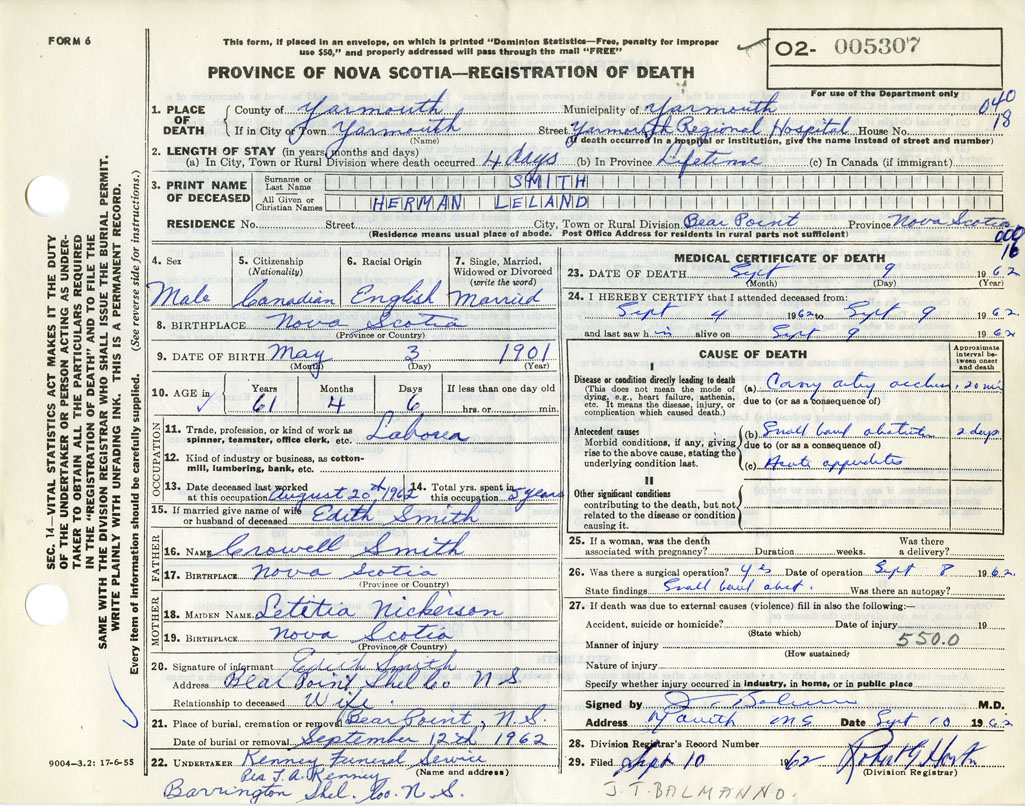 FORM 6
This form, if placed in an envelope, on which is printed "Dominion Statistics—Free, penalty for improper
use $50," and properly addressed will pass through the mail "FREE"
PROVINCE OF NOVA SCOTIA—REGISTRATION OF DEATH
02- 005307
For use of the Department only
040
18
1. PLACE OF DEATH
County of Yarmouth Municipality of Yarmouth
If in City or Town Yarmouth Street Yarmouth Regional Hospital House No.
(Name) (If death occurred in a hospital or institution, give the name instead of street and number)
2. LENGTH OF STAY (in years, months and days)
(a) In City, Town or Rural Division where death occurred 4 days (b) In Province Lifetime (c) In Canada (if immigrant)
3. PRINT NAME OF DECEASED
Surname or Last Name SMITH
All Given or Christian Names HERMAN LELAND
RESIDENCE No. Street City, Town or Rural Division Bear Point Province Nova Scotia
(Residence means usual place of abode. Post Office Address for residents in rural parts not sufficient)
000
16
4. Sex
Male
5. Citizenship
(Nationality)
Canadian
6. Racial Origin
English
7. Single, Married,
Widowed or Divorced
(write the word)
Married
8. BIRTHPLACE Nova Scotia
(Province or Country)
9. DATE OF BIRTH May 3 1901
(Month) (Day) (Year)
10. AGE in
Years Months Days If less than one day old
61 4 6 hrs. or min.
OCCUPATION
11. Trade, profession, or kind of work as
spinner, teamster, office clerk, etc. Laborer
12. Kind of industry or business, as cotton-
mill, lumbering, bank, etc.
13. Date deceased last worked
at this occupation August 20th, 1962
14. Total yrs. spent in
this occupation 5 years
15. If married give name of wife
or husband of deceased Edith Smith
FATHER
16. NAME Crowell Smith
17. BIRTHPLACE Nova Scotia
(Province or Country)
MOTHER
18. MAIDEN NAME Letitia Nickerson
19. BIRTHPLACE Nova Scotia
(Province or Country)
20. Signature of informant Edith Smith
Address Bear Point Shel Co N S
Relationship to deceased Wife
21. Place of burial, cremation or removal Bear Point, N.S.
Date of burial or removal September 12th 1962
22. UNDERTAKER Kenney Funeral Service
(Name and address)
Per J. A. Kenney
Barrington Shel. Co. N. S.
MEDICAL CERTIFICATE OF DEATH
23. DATE OF DEATH Sept 9 1962
(Month) (Day) (Year)
24. I HEREBY CERTIFY that I attended deceased from:
Sept 4 1962 to Sept 9 1962
and last saw h im alive on Sept 9 1962
CAUSE OF DEATH
Approximate
interval be-
tween onset
and death
I
Disease or condition directly leading to death
(This does not mean the mode of
dying, e.g., heart failure, asthenia,
etc. It means the disease, injury, or
complication which caused death.)
(a) Corony artery occlusn, 20 min
due to (or as a consequence of)
Antecedent causes
Morbid conditions, if any, giving
rise to the above cause, stating the
underlying condition last.
(b) Small bowel obstruction 2 days
due to (or as a consequence of)
(c) Acute appendicitis
II
Other significant conditions
contributing to the death, but not
related to the disease or condition
causing it.
25. If a woman, was the death
associated with pregnancy? Duration weeks. Was there
a delivery?
26. Was there a surgical operation? yes Date of operation Sept 8 1962.
State findings Small bowel obst. Was there an autopsy?
27. If death was due to external causes (violence) fill in also the following:—
Accident, suicide or homicide? Date of injury 19
(State which)
550.0
Manner of injury
(How sustained)
Nature of injury
Specify whether injury occurred in industry, in home, or in public place
Signed by J. T. Balmanno M.D.
Address Yarmouth NS Date Sept 10 1962
28. Division Registrar's Record Number
29. Filed Sept 10 1962 Robert G Horton
(Division Registrar)
J.T. BALMANNO.
SEC. 14—VITAL STATISTICS ACT MAKES IT THE DUTY
OF THE UNDERTAKER OR PERSON ACTING AS UNDER-
TAKER TO OBTAIN ALL THE PARTICULARS REQUIRED
IN THE "REGISTRATION OF DEATH" AND TO FILE THE
SAME WITH THE DIVISION REGISTRAR WHO SHALL ISSUE THE BURIAL PERMIT.
WRITE PLAINLY WITH UNFADING INK. THIS IS A PERMANENT RECORD.
Every item of information should be carefully supplied. (See reverse side for instructions.)
9004—3.2: 17-6-55